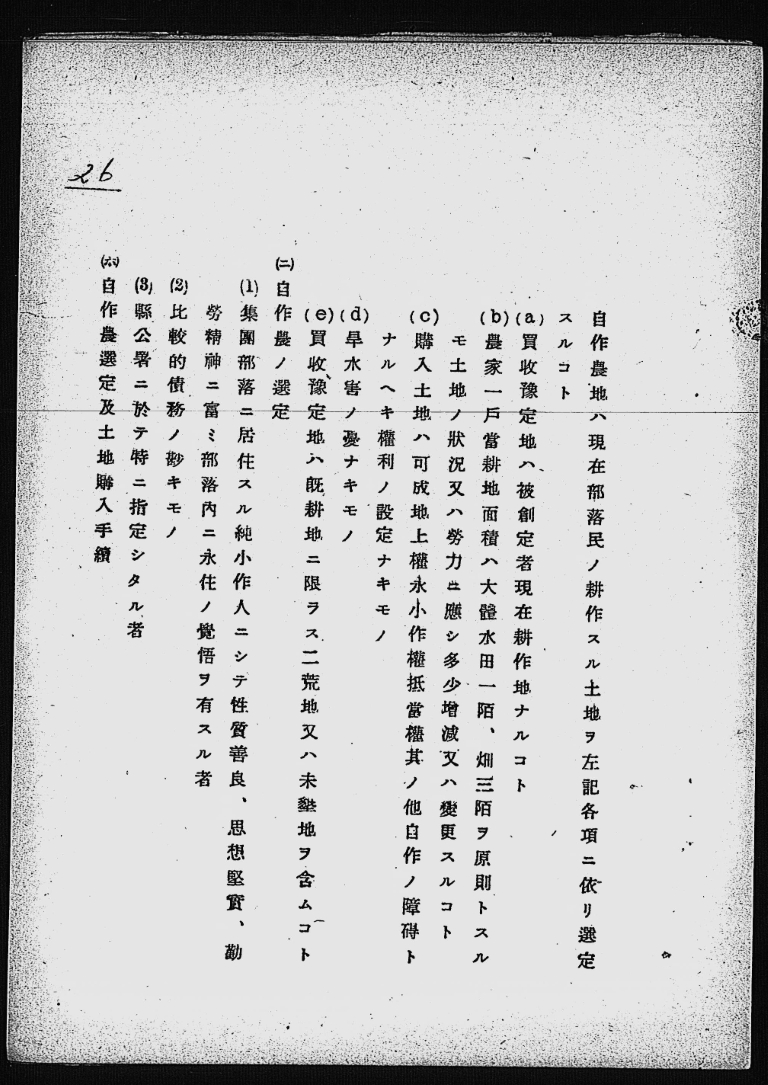 26
自作農地ハ現在部落民ノ耕作スル土地ヲ左記各項ニ依リ選定
スルコト
(a)買收豫定地ハ被創定者現在耕作地ナルコト
(b)農家一戶當耕地面積ハ大體水田一陌、畑三陌ヲ原則トスル
モ土地ノ狀況又ハ勞力ニ應シ多少增減又ハ變更スルコト
(c)購入土地ハ可成地上權永小作權抵當權其ノ他自作ノ障碍ト
ナルヘキ權利ノ設定ナキモノ
(d)旱水害ノ憂ナキモノ
(e)買收豫定地ハ既耕地ニ限ラス二荒地又ハ未墾地ヲ含ムコト
(二)自作農ノ選定
(1)集團部落ニ居住スル純小作人ニシテ性質善良、思想堅實、勤
勞精神ニ富ミ部落內ニ永住ノ覺悟ヲ有スル者
(2)比較的債務ノ尠キモノ
(3)縣公署ニ於テ特ニ指定シタル者
(六)自作農選定及土地購入手續